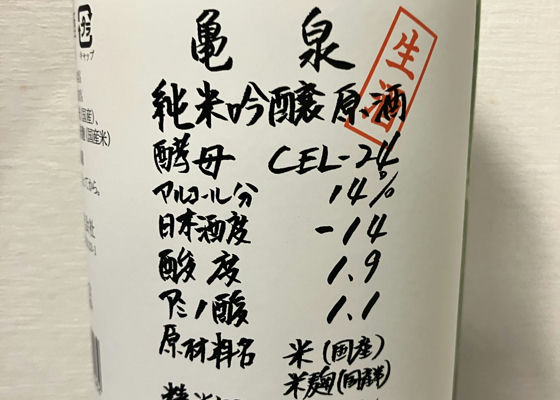 亀泉
生酒
純米吟醸原酒
酵母 CEL-24
アルコール分 14%
日本酒度 -14
酸度 1.9
アミノ酸 1.1
原材料名 米(国産)
米麹(国産米)
プラ
キャップ
国産)、
(国産米)